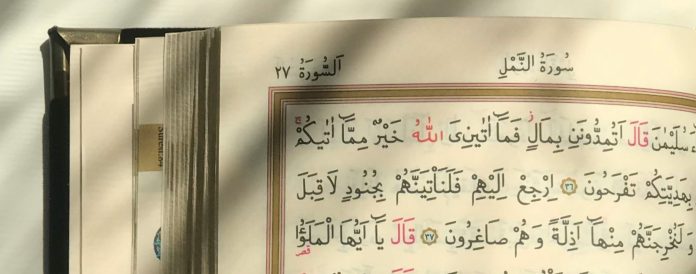 سُورَةُ النَّمْلِ اَلسُّورَةُ ٢٧
سُلَيْمٰنَ قَالَ اَتُمِدُّونَنِ بِمَالٍ فَمَٓا اٰتٰينِيَ اللّٰهُ خَيْرٌ مِمَّٓا اٰتٰيكُمْ
بِهَدِيَّتِكُمْ تَفْرَحُونَ ﴿٣٦﴾ اِرْجِعْ اِلَيْهِمْ فَلَنَأْتِيَنَّهُمْ بِجُنُودٍ لَا قِبَلَ
وَلَنُخْرِجَنَّهُمْ مِنْهَٓا اَذِلَّةً وَهُمْ صَاغِرُونَ ﴿٣٧﴾ قَالَ يَٓا اَيُّهَا الْمَلَؤُ۬ا